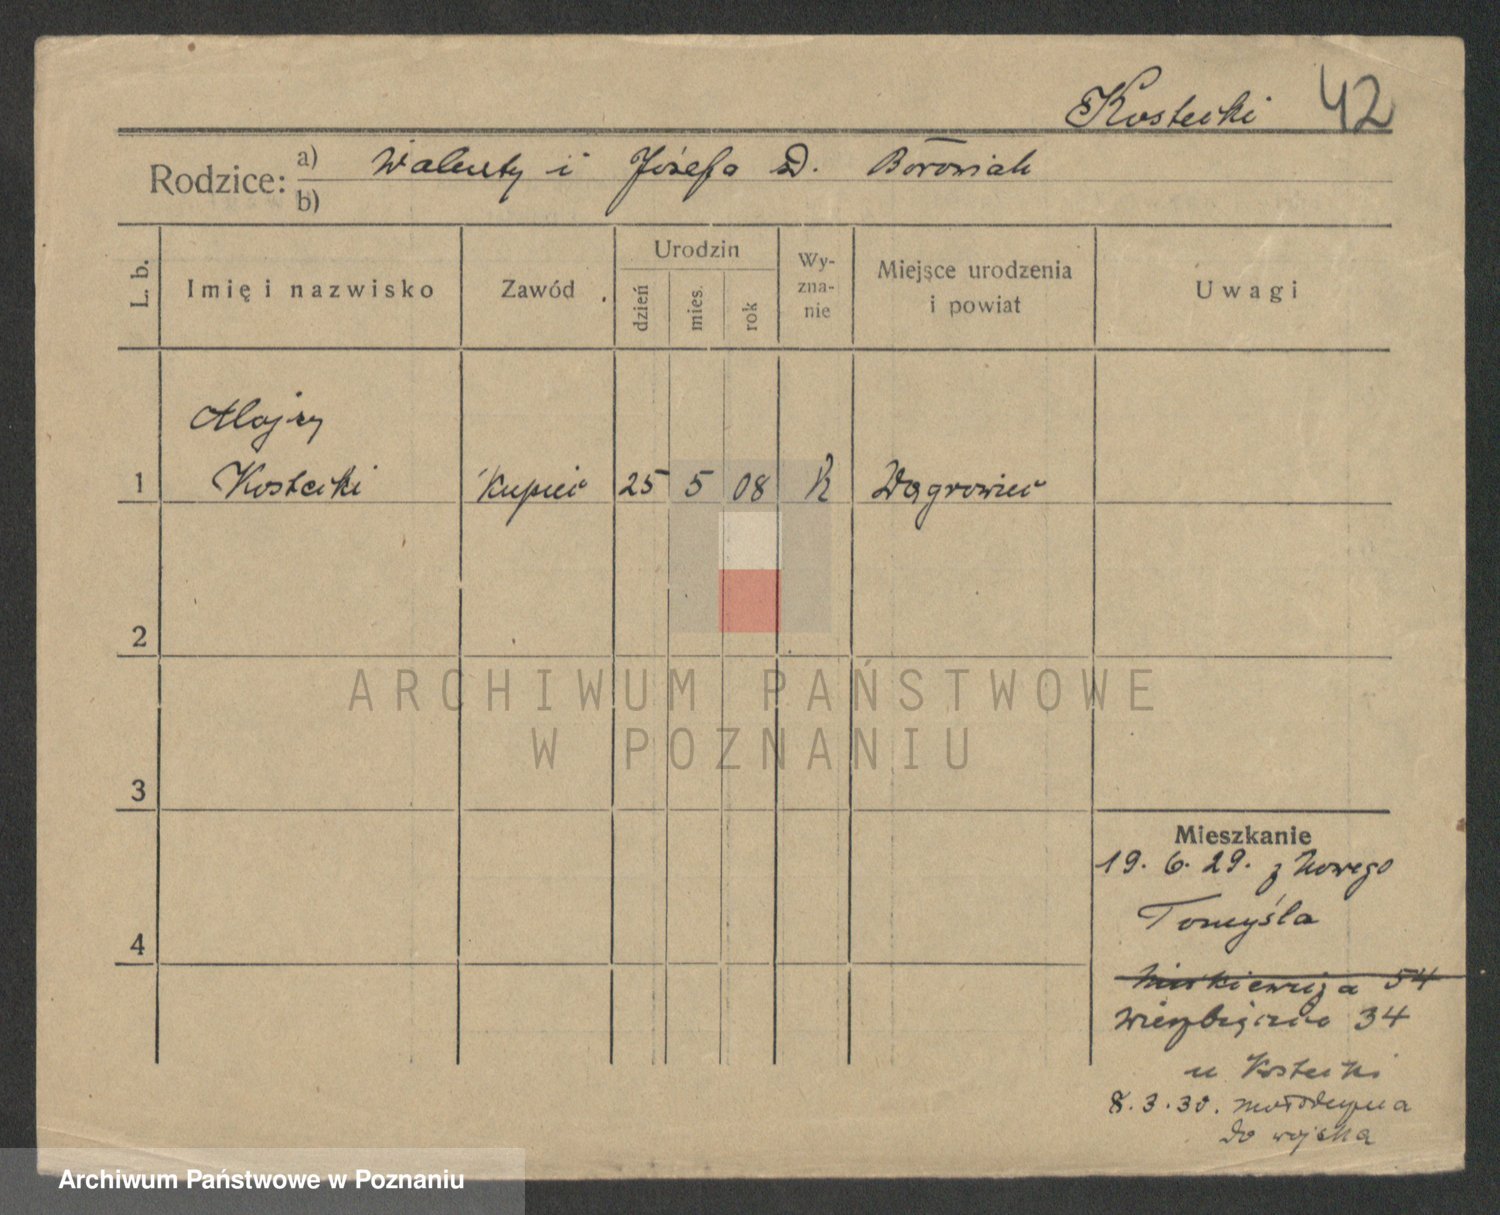 Kostecki 42
Rodzice: a) Walenty i Józefa D. Borowiak
b)
L. b. Imię i nazwisko Zawód Urodzin dzień mies. rok Wy-zna-nie Miejsce urodzenia i powiat Uwagi
Alojzy
1 Kostecki Kupiec 25 5 08 K Wągrowiec
2
ARCHIWUM PAŃSTWOWE
W POZNANIU
3
Mieszkanie
19. 6. 29. z Nowego
Tomyśla
4
54
34
u Kostecki
8. 3. 30.
do wojska
Archiwum Państwowe w Poznaniu